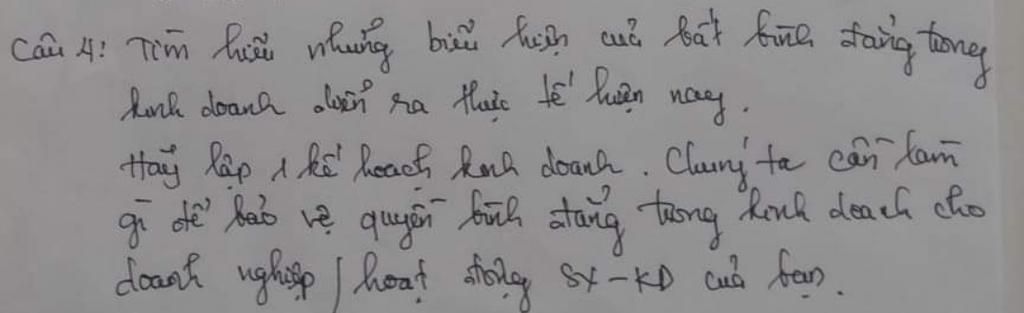 Câu 4: Tìm hiểu những biểu hiện của bất bình đẳng trong
kinh doanh diễn ra thực tế hiện nay.
Hãy lập 1 kế hoạch kinh doanh. Chúng ta cần làm
gì để bảo vệ quyền bình đẳng trong kinh doanh cho
doanh nghiệp / hoạt động SX - KD của bạn.